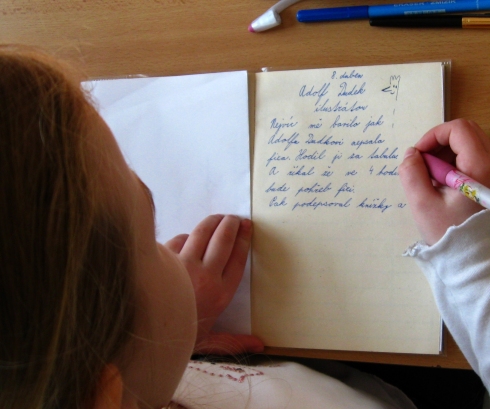 8. duben
Adolf Dudek
ilustrátor
Nejvíc mě bavilo jak
Adolfu Dudkovi nepsala
fixa. Hodil ji za tabulu
A říkal že ve 4 hodi
bude pohřeb fixi.
Pak podepisoval knížky a